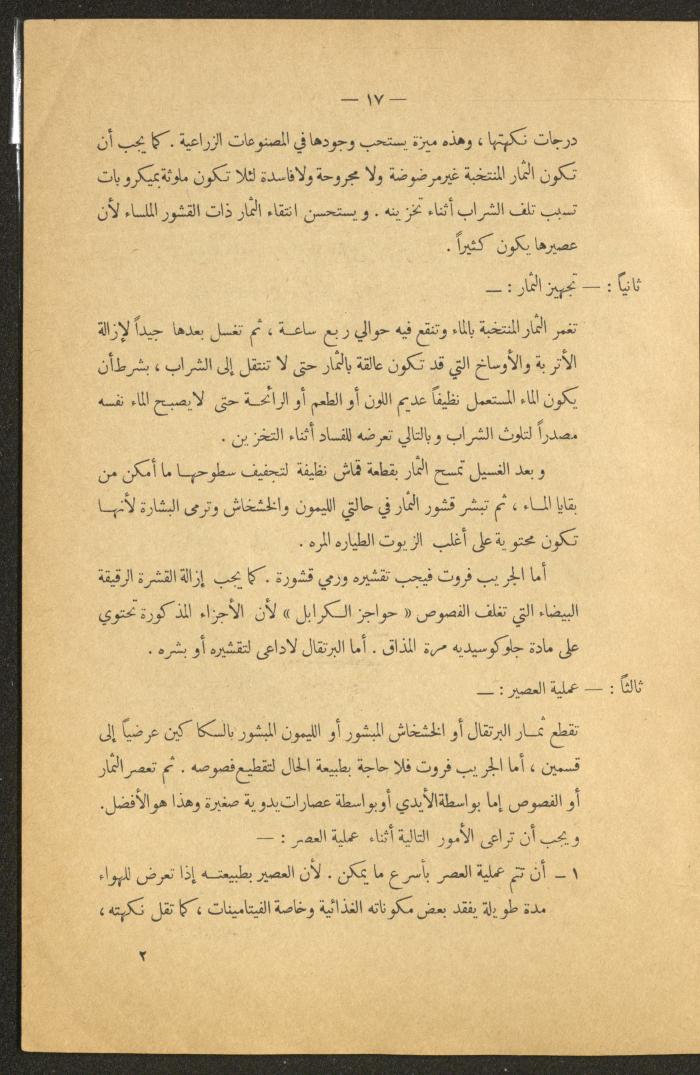 — ١٧ —
درجات نكهتها ، وهذه ميزة يستحب وجودها في المصنوعات الزراعية . كما يجب أن
تكون الثمار المنتخبة غير مرضوضة ولا مجروحة ولا فاسدة لئلا تكون ملوثة بميكروبات
تسبب تلف الشراب أثناء تخزينه . ويستحسن انتقاء الثمار ذات القشور الملساء لأن
عصيرها يكون كثيراً .
ثانياً : — تجهيز الثمار : —
تغمر الثمار المنتخبة بالماء وتنقع فيه حوالي ربع ساعة ، ثم تغسل بعدها جيداً لإزالة
الأتربة والأوساخ التي قد تكون عالقة بالثمار حتى لا تنتقل إلى الشراب ، بشرط أن
يكون الماء المستعمل نظيفاً عديم اللون أو الطعم أو الرائحة حتى لا يصبح الماء نفسه
مصدراً لتلوث الشراب وبالتالي تعرضه للفساد أثناء التخزين .
وبعد الغسيل تمسح الثمار بقطعة قماش نظيفة لتجفيف سطوحها ما أمكن من
بقايا الماء ، ثم تبشر قشور الثمار في حالتي الليمون والخشخاش وترمى البشارة لأنها
تكون محتوية على أغلب الزيوت الطياره المره .
أما الجريب فروت فيجب تقشيره ورمي قشورة . كما يجب إزالة القشرة الرقيقة
البيضاء التي تغلف الفصوص « حواجز الكرابل » لأن الأجزاء المذكورة تحتوي
على مادة جلوكوسيديه مرة المذاق . أما البرتقال لاداعى لتقشيره أو بشره .
ثالثاً : — عملية العصير : —
تقطع ثمار البرتقال أو الخشخاش المبشور أو الليمون المبشور بالسكاكين عرضياً إلى
قسمين ، أما الجريب فروت فلا حاجة بطبيعة الحال لتقطيع فصوصه . ثم تعصر الثمار
أو الفصوص إما بواسطة الأيدي أو بواسطة عصارات يدوية صغيرة وهذا هو الأفضل.
ويجب أن تراعى الأمور التالية أثناء عملية العصر : —
١ - أن تتم عملية العصر بأسرع ما يمكن . لأن العصير بطبيعته إذا تعرض للهواء
مدة طويلة يفقد بعض مكوناته الغذائية وخاصة الفيتامينات ، كما تقل نكهته ،
٢